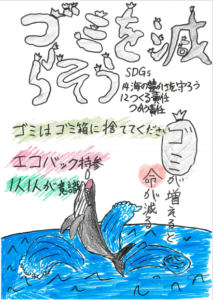 ゴミを減
らそう
SDGs
14海の豊かさを守ろう
12つくる責任
つかう責任
ゴミはゴミ箱に捨ててください
エコバック持参
1人1人が意識
ゴミが増えると
命が減る